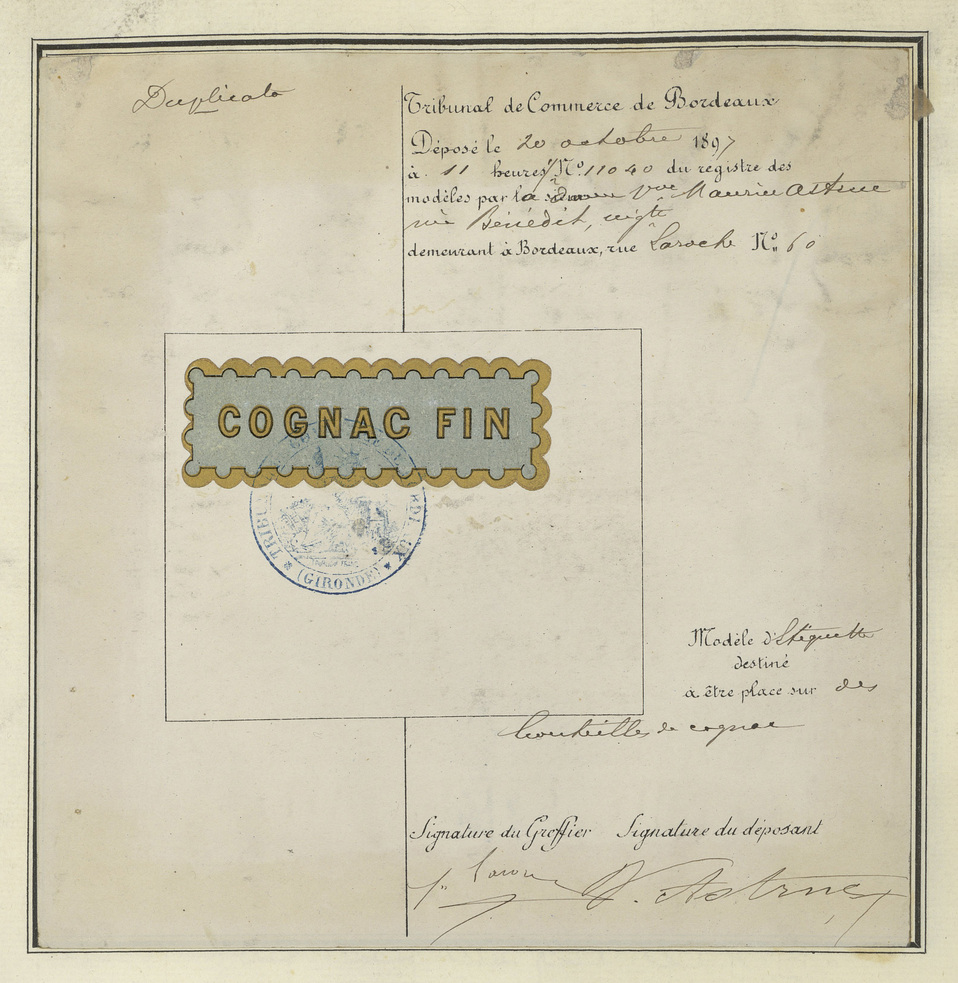 Duplicata
Tribunal de Commerce de Bordeaux
Déposé le 20 octobre 1897
à 11 heures N° 11040 du registre des
modèles par la Vve Maurice Astruc
née Bénédit, négte
demeurant à Bordeaux, rue Laroche N° 60
COGNAC FIN
TRIBU
RDEAUX
(GIRONDE)
Modèle d'Etiquette
destiné
à être placé sur des
bouteilles de cognac
Signature du Greffier Signature du déposant
V. Astruc